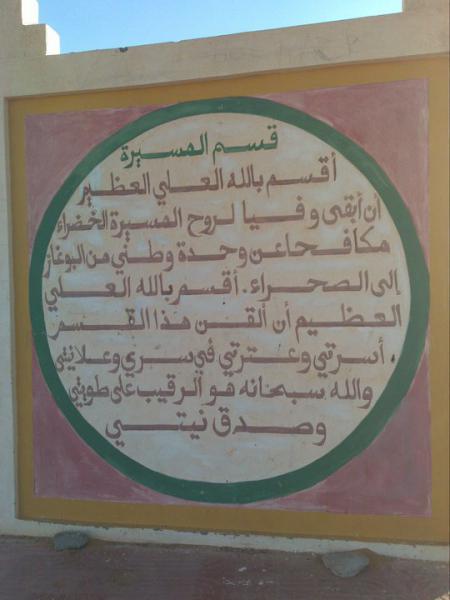 قسم المسيرة
أقسم بالله العلي العظيم
أن أبقى وفيا لروح المسيرة الخضراء
مكافحا عن وحدة وطني من البوغاز
إلى الصحراء. أقسم بالله العلي
العظيم أن ألقن هذا القسم
، أسرتي وعترتي في سري وعلانيتي
والله سبحانه هو الرقيب على طويتي
وصدق نيتي